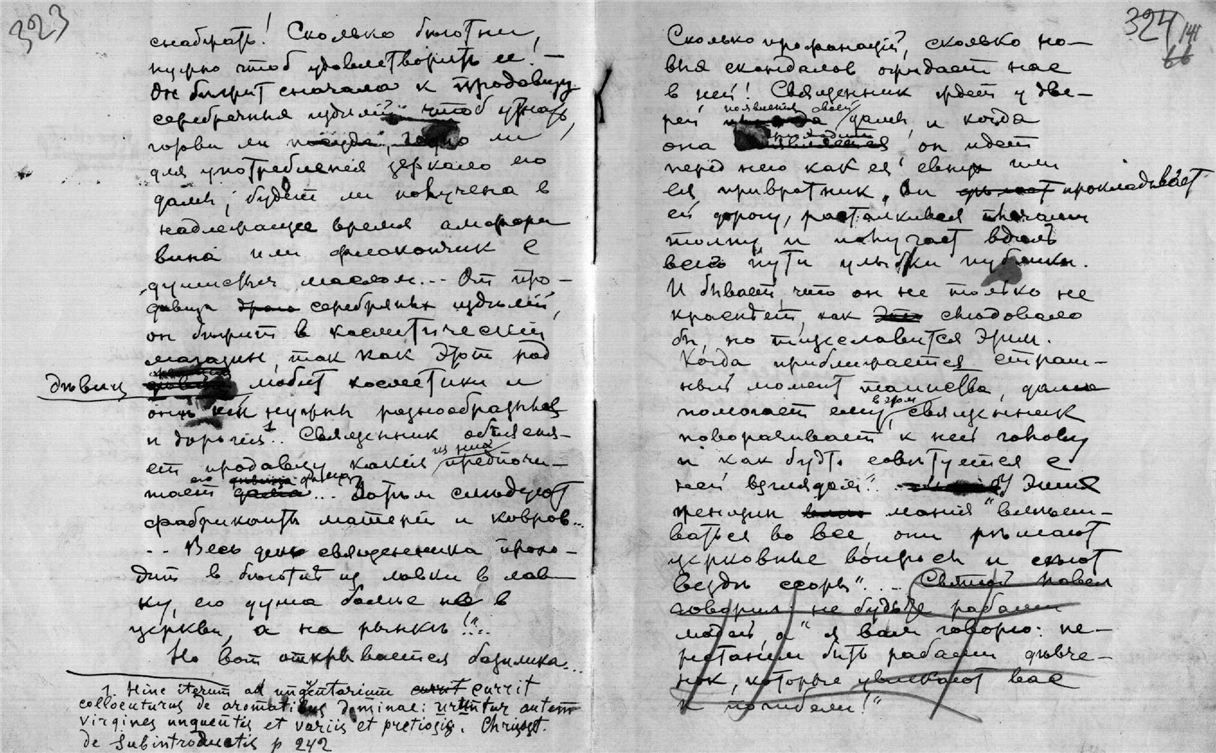 323
снабжать! Сколько бѣготни,
нужно чтоб удовлетворить ее! —
Он бѣжит сначала к продавцу
серебряныя издѣлій чтоб узнать,
готова ли ли
для употребленія зеркало его
дамы; будет ли получена в
надлежащее время амфора
вина или флакончик с
душистым маслом... От про-
давца серебряных издѣлій,
он бѣжит в косметическій
магазин так как этот род
дѣвиц любит косметики и
нужны разнообразныя
и дорогія 1.. Священник объясня-
ет продавцу какія из них предпочи-
тает его ... Затѣм слѣдуют
фабриканты матерій и ковров...
... Весь день священника прохо-
дит в бѣготнѣ из лавки в лав-
ку, его дума болѣе не в
церкви, а на рынкѣ!...
Но вот открывается базилика...
1. Hinc iterum ad unguentarium currit
collocuturus de aromatibus dominae: utuntur autem
virgines unguentis et variis et pretiosis. Chrisost.
de Subintroductis p 242
324
Сколько профанацій, сколько но-
вых скандалов ожидает нас
в ней! Священник ждет у две-
рей появленія своей дамы, и когда
она он идет
перед нею как ея евнух или
ея привратник. Он прокладывает
ей дорогу, расталкивая
толпу и получает вдоль
всего пути улыбки публики.
И бывает, что он не только не
краснѣет, как слѣдовало
бы, но тщеславится этим.
Когда приближается страш-
ный момент таинства, дама
помогает ему в священник
поворачивает к ней голову
и как будто совѣтуется с
ней взглядом"... У этих
женщин манія "вмѣши-
ваться во все, они рѣшают
церковные вопросы и сѣют
вездѣ ссоры".... Святой Павел
говорил не будьте рабами
людей, а я вам говорю: пе-
рестаньте быть рабами дѣвче-
нок, которые увлекают вас
к погибели!"